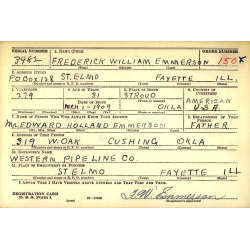 SERIAL NUMBER 1. NAME (Print) ORDER NUMBER
3982 FREDERICK WILLIAM EMMERSON 150
(First) (Middle) (Last)
2. ADDRESS (Print)
P.O. BOX 128 ST. ELMO FAYETTE ILL.
3. TELEPHONE 4. AGE IN YEARS 5. PLACE OF BIRTH 6. COUNTRY OF CITIZENSHIP
279 31 STROUD AMERICAN
DATE OF BIRTH
1909 OKLA U.S.A.
7. NAME OF PERSON WHO WILL ALWAYS KNOW YOUR ADDRESS 8. RELATIONSHIP OF THAT PERSON
MR. EDWARD HOLLAND EMMERSON FATHER
9. ADDRESS OF THAT PERSON
W. OAK CUSHING OKLA
10. EMPLOYER'S NAME
WESTERN PIPELINE CO.
11. PLACE OF EMPLOYMENT OR BUSINESS
ST ELMO FAYETTE ILL
I AFFIRM THAT I HAVE VERIFIED ABOVE ANSWERS AND THAT THEY ARE TRUE.
REGISTRATION CARD
D. S. S. FORM 1
F.W. Emmerson